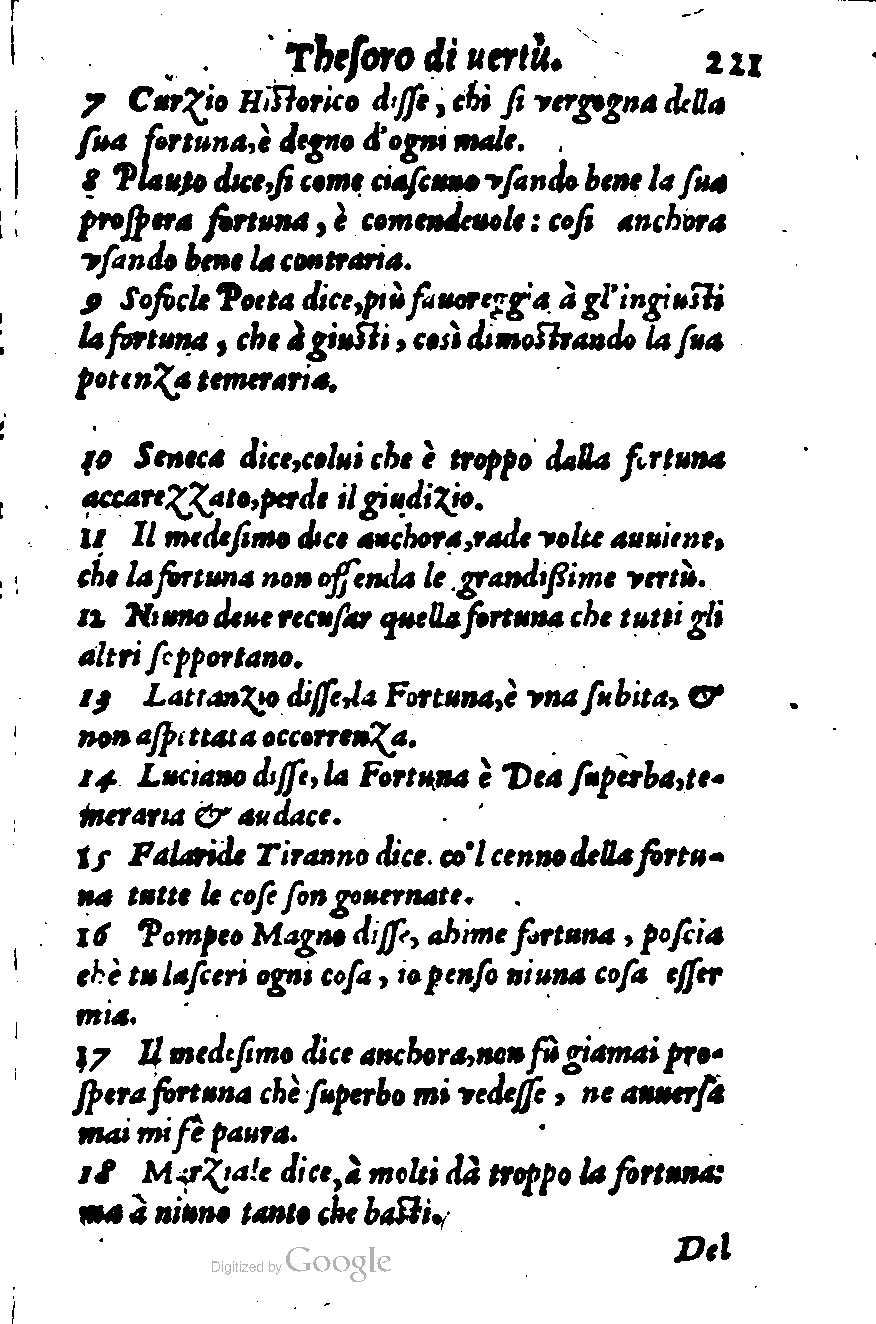 Theſoro di uertù. 221
7 Curzio Hiſtorico diſſe, chi ſi vergogna della
ſua fortuna, è degno d'ogni male.
8 Plauto dice, ſi come ciaſcuno vſando bene la ſua
proſpera fortuna, è comendeuole: coſi anchora
vſando bene la contraria.
9 Sofocle Poeta dice, più fauoreggia à gl'ingiuſti
la fortuna, che à giuſti, così dimoſtrando la ſua
potenza temeraria.
10 Seneca dice, colui che è troppo dalla fortuna
accarezzato, perde il giudizio.
11 Il medeſimo dice anchora, rade volte auuiene,
che la fortuna non offenda le grandißime vertù.
12 Niuno deue recuſar quella fortuna che tutti gli
altri ſopportano.
13 Lattanzio diſſe, la Fortuna, è vna ſubita, &
non aſpettata occorrenza.
14 Luciano diſſe, la Fortuna è Dea ſuperba, te-
meraria & audace.
15 Falaride Tiranno dice. co'l cenno della fortu-
na tutte le coſe ſon gouernate.
16 Pompeo Magno diſſe, ahime fortuna, poſcia
chè tu laſceri ogni coſa, io penſo niuna coſa eſſer
mia.
17 Il medeſimo dice anchora, non fù giamai pro-
ſpera fortuna chè ſuperbo mi vedeſſe, ne auuerſa
mai mi fê paura.
18 Marziale dice, à molti dà troppo la fortuna:
ma à niuno tanto che baſti.
Del
Digitized by Google